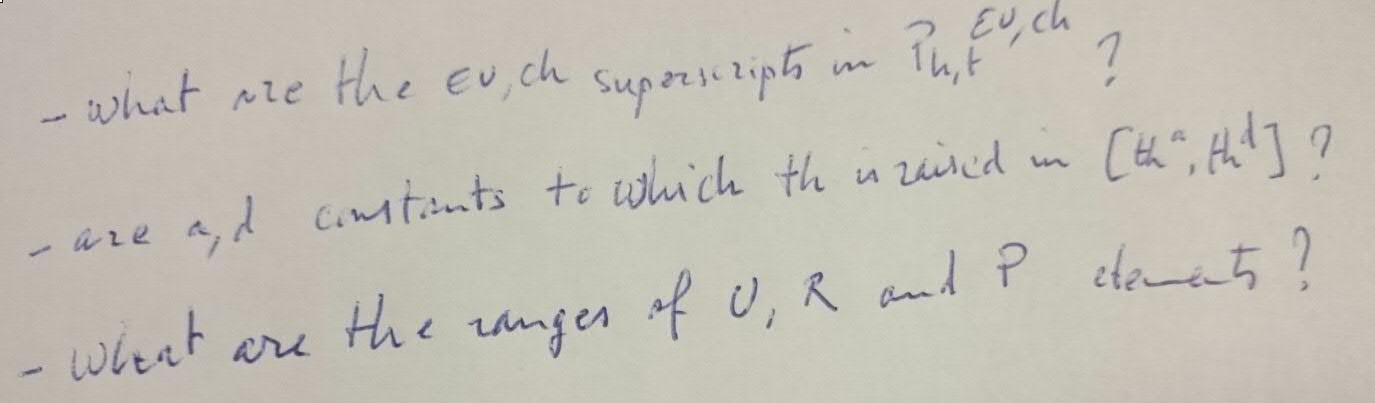 - What are the EV, ch superscripts in P_{h,t}^{EV,ch} ?
- are a, d constants to which th is raised in [th^a, th^d] ?
- What are the ranges of U, R and P elements ?